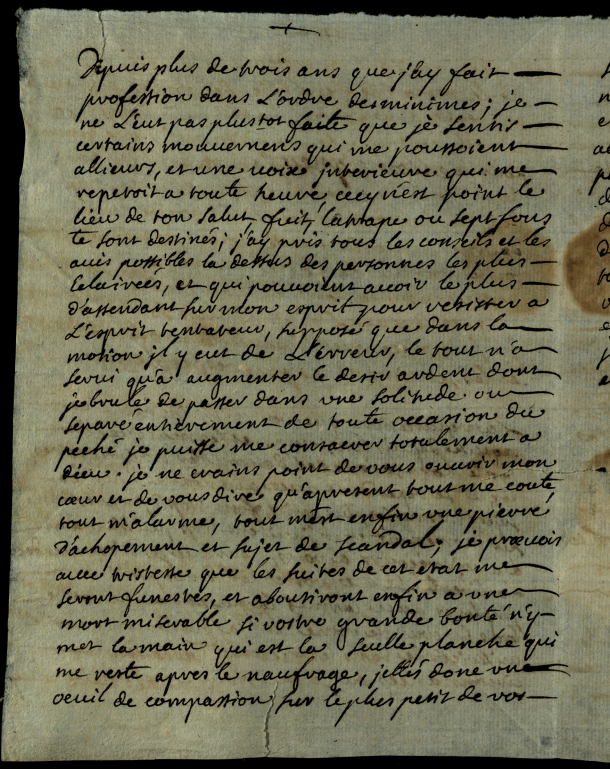 Depuis plus de trois ans que j'ay fait
profession dans L'ordre des minimes; je
ne L'eut pas plustot faite que je sentis
certains mouuemens qui me poussoient
allieurs, et une uoix interieure qui me
repetoit a toute heure, cecy n'est point le
lieu de ton salut fuit, latrape ou sept fons
te sont destinés; j'ay pris tous les conseils et les
auis possibles la dessus des personnes les plus
eclairées, et qui pouuoient auoir le plus
d'assendant sur mon esprit pour resister a
L'esprit tentateur, supposé que dans la
motion il y eut de L'erreur, le tout n'a
serui qu'a augmenter le desir ardent dont
je brule de passer dans une solitude ou
separé entierement de toute occasion du
peché je puisse me consacrer totalement a
dieu. je ne crains point de uous ouurir mon
cœur et de uous dire qu'apresent tout me coute,
tout m'alarme, tout m'est enfin une pierre
d'achopement et sujet de scandal; je preuois
auec tristesse que les suites de cet etat me
seront funestes, et aboutiront enfin a une
mort miserable si vostre grande bonté n'y
met la main qui est la seulle planche qui
me reste apres le naufrage, jettés donc une
oeuil de compassion sur le plus petit de vos